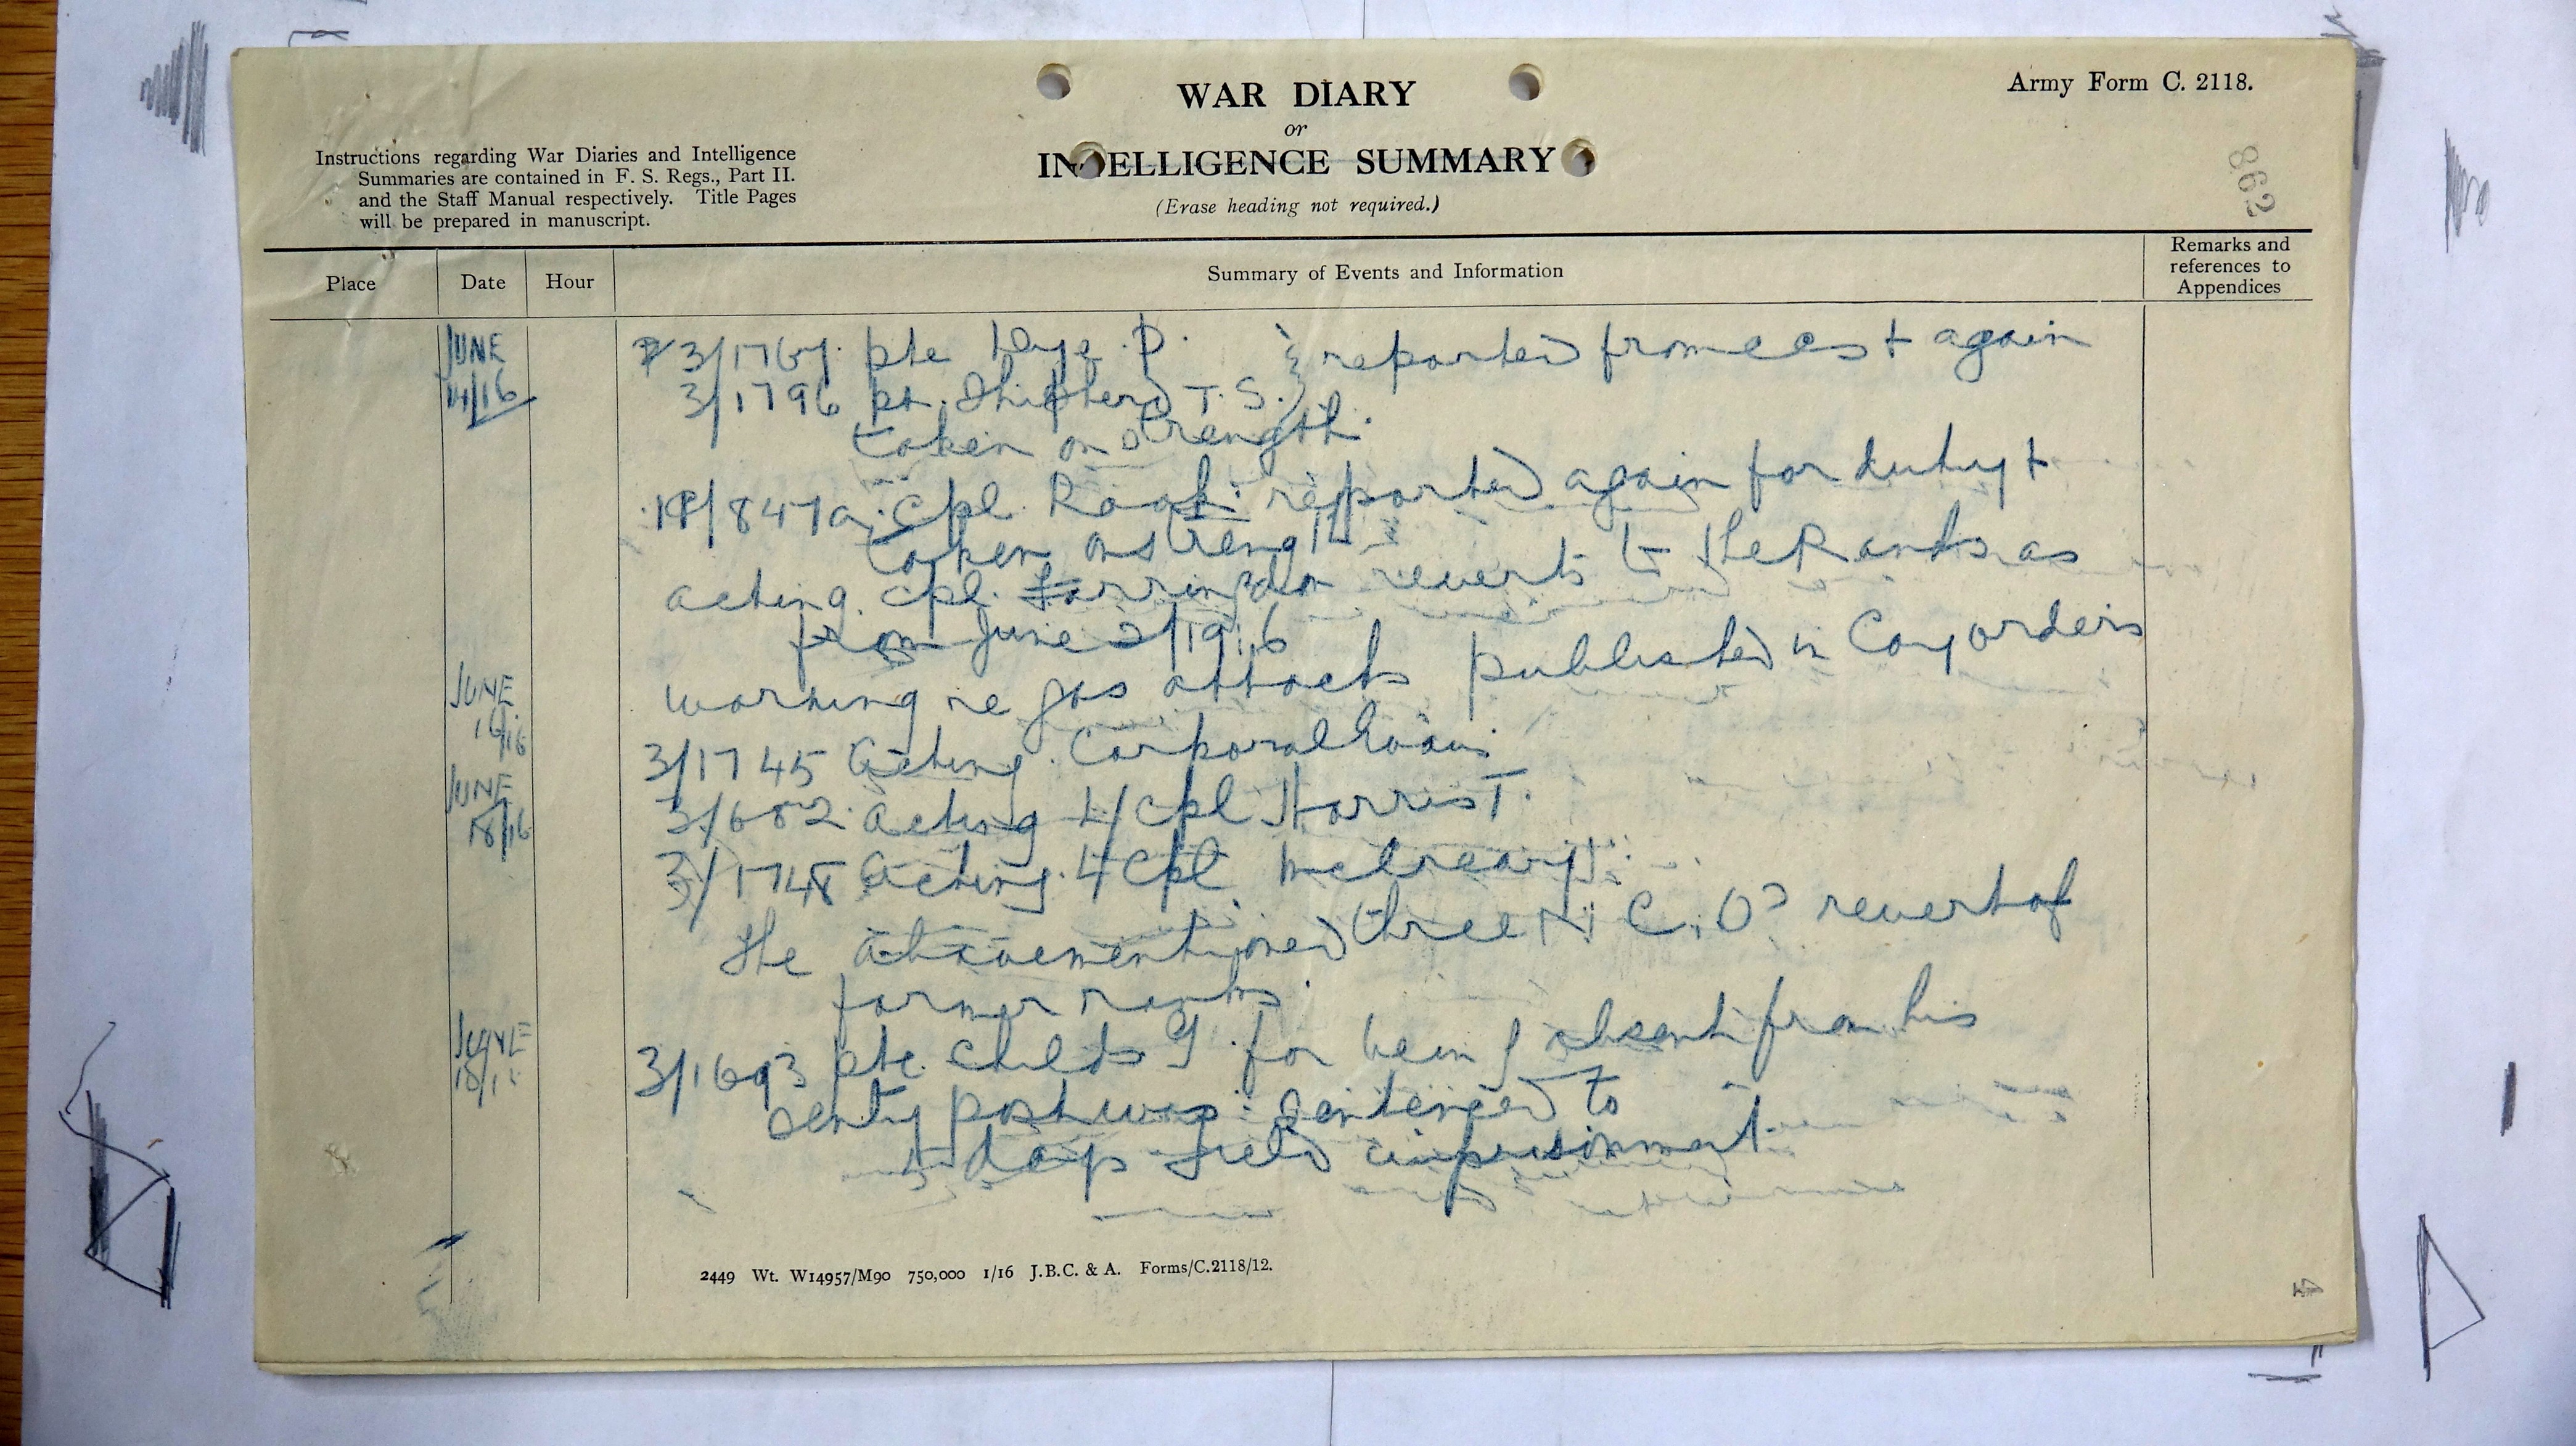 WAR DIARY
or
INTELLIGENCE SUMMARY
(Erase heading not required.)
Army Form C. 2118.
862
Instructions regarding War Diaries and Intelligence
Summaries are contained in F. S. Regs., Part II.
and the Staff Manual respectively. Title Pages
will be prepared in manuscript.
Place Date Hour Summary of Events and Information Remarks and references to Appendices
JUNE 14/16
pte Dye. D. } reported from ccs + again
3/1796 pte. Shipherd T. S. }
taken on strength.
Cpl. reported again for duty +
taken on strength
acting. Cpl. Farringdon reverts to the Ranks as
from June 2/1916
JUNE 16/16
warning re gas attacks published in Coy orders
JUNE 18/16
3/1745 Acting. Corporal Evans
3/682. Acting L/Cpl Harris T.
Acting. L/Cpl McCreary
the abovementioned three N. C. Os revert of
former ranks.
JUNE
3/1693 pte. Childs J. for being absent from his
sentry post was sentenced to
days field imprisonment.
2449 Wt. W14957/M90 750,000 1/16 J.B.C. & A. Forms/C.2118/12.
4